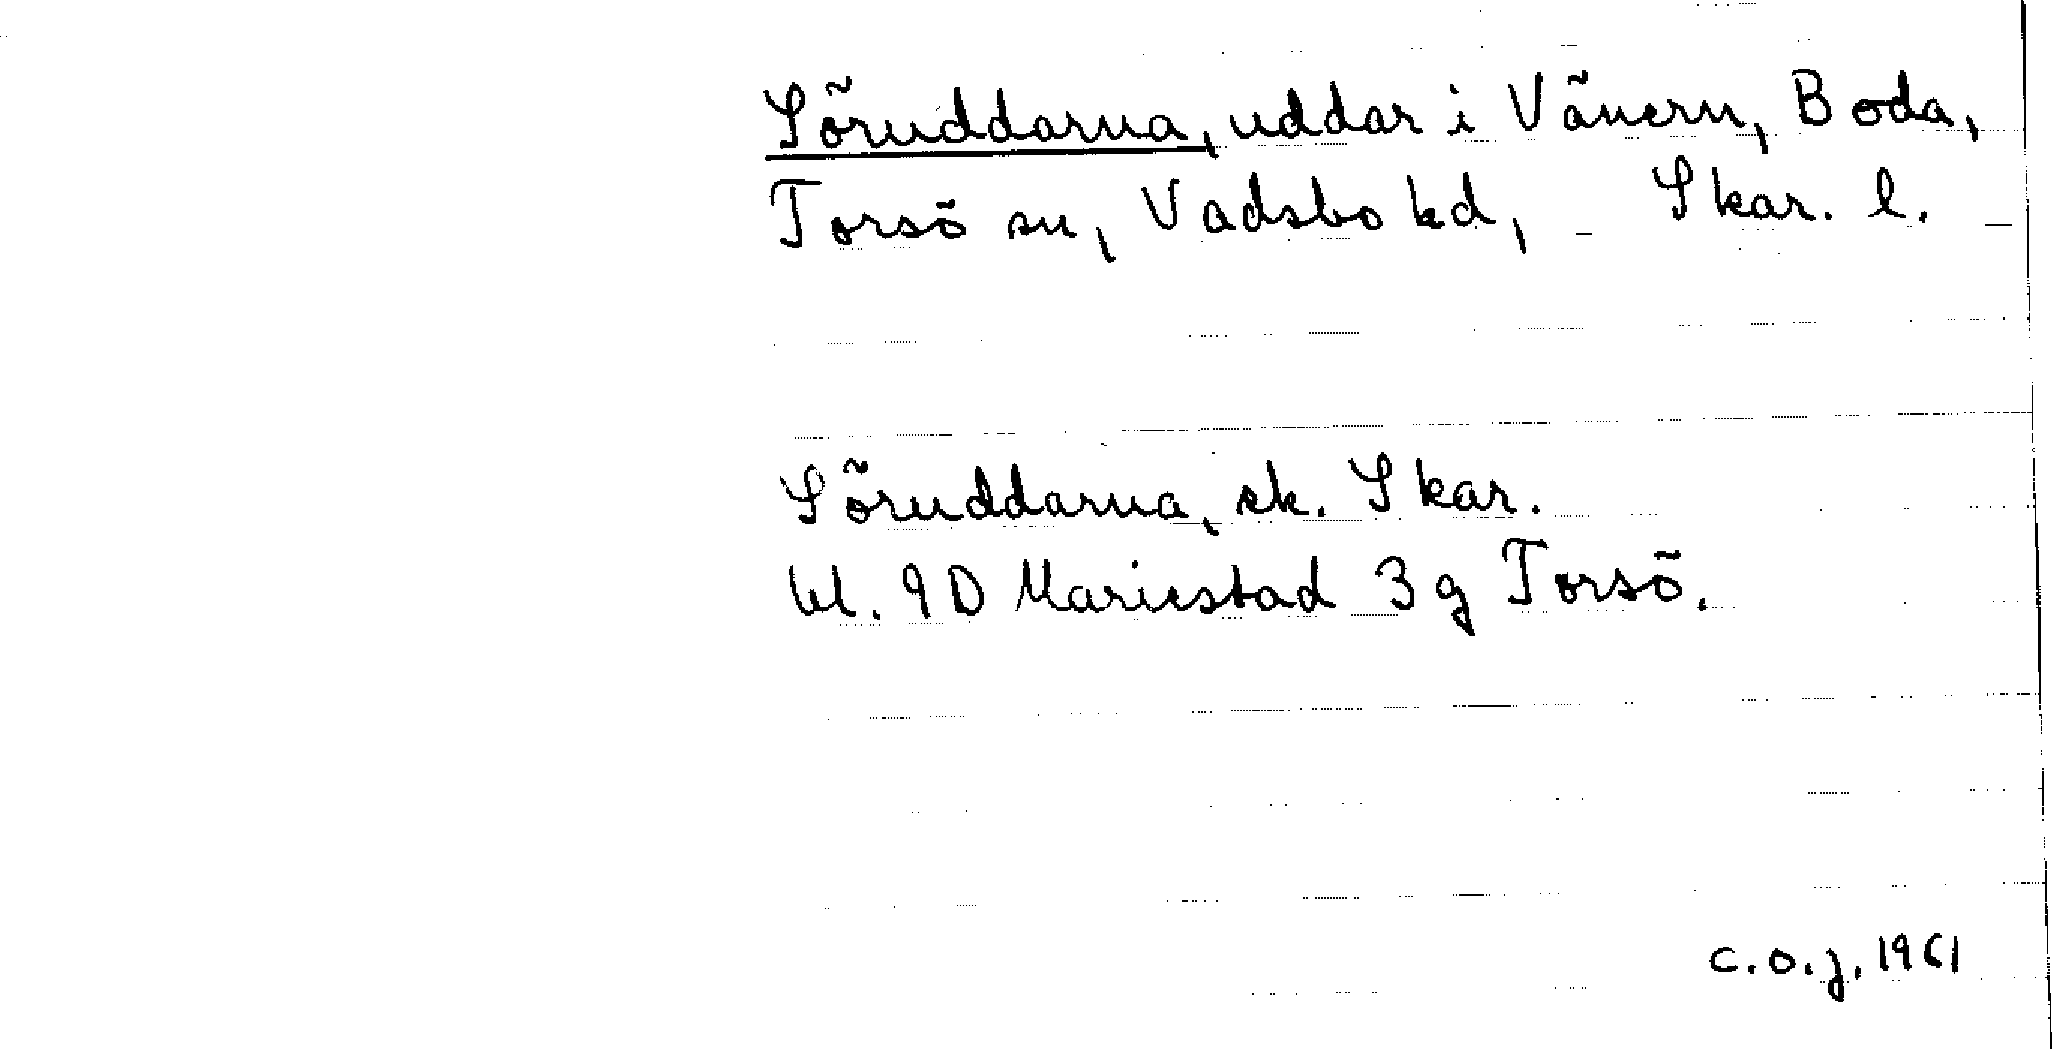 Söruddarna, uddar i Vänern, Boda,
Torsö sn, Vadsbo hd, Skar. l.
Söruddarna, ek. Skar.
bl. 9D Mariestad 3g Torsö.
C.O.J. 1961